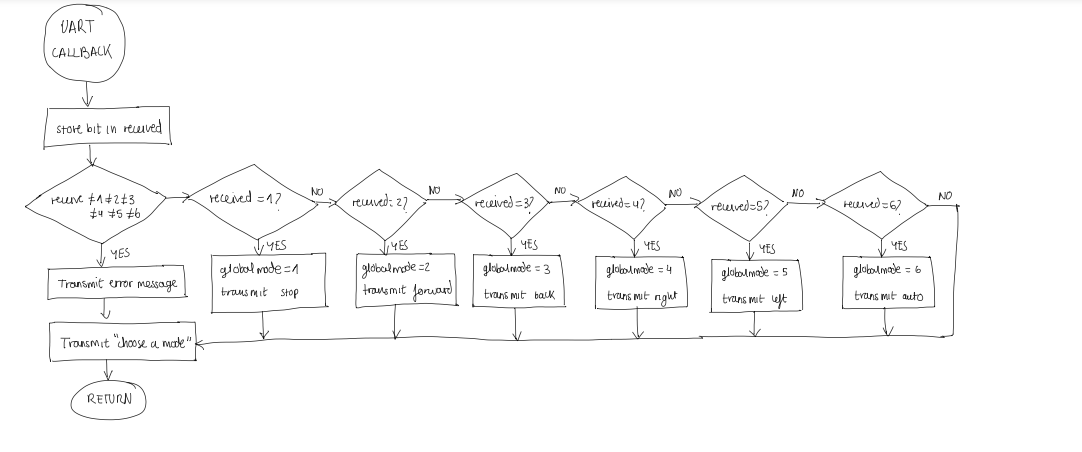 UART
CALLBACK
store bit in received
receive ≠1≠2≠3
≠4 ≠5 ≠6
YES
Transmit error message
Transmit "choose a mode"
RETURN
received =1?
NO
YES
globalmode =1
transmit stop
received=2?
NO
YES
globalmode=2
transmit forward
received=3?
NO
YES
globalmode = 3
transmit back
received=4?
NO
YES
globalmode = 4
transmit right
received=5?
NO
YES
globalmode = 5
transmit left
received=6?
NO
YES
globalmode = 6
transmit auto